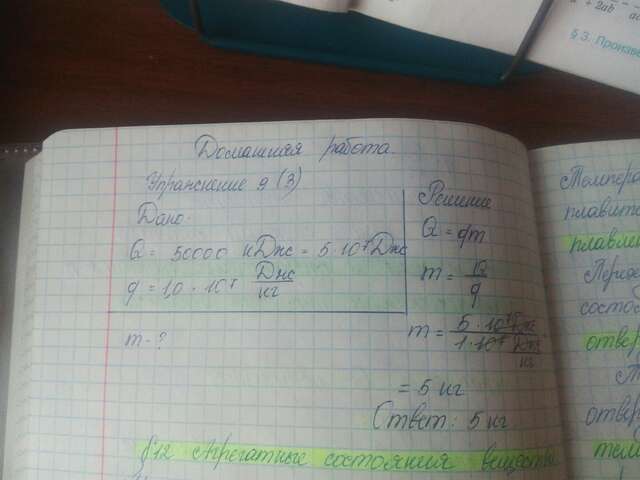 + 2ab
§ 3. Произве
Домашняя работа.
Упражнение 9 (3)
Дано:
Q = 50000 кДж = 5·10⁷ Дж
q = 1,0 · 10⁷ Дж/кг
m - ?
Решение
Q = qm
m = Q/q
m = 5·10⁷ Дж / 1·10⁷ Дж/кг
= 5 кг
Ответ: 5 кг
§12 Агрегатные состояния вещества
Темпера
плавит
плавле
Перех
состоя
отвер
отвер